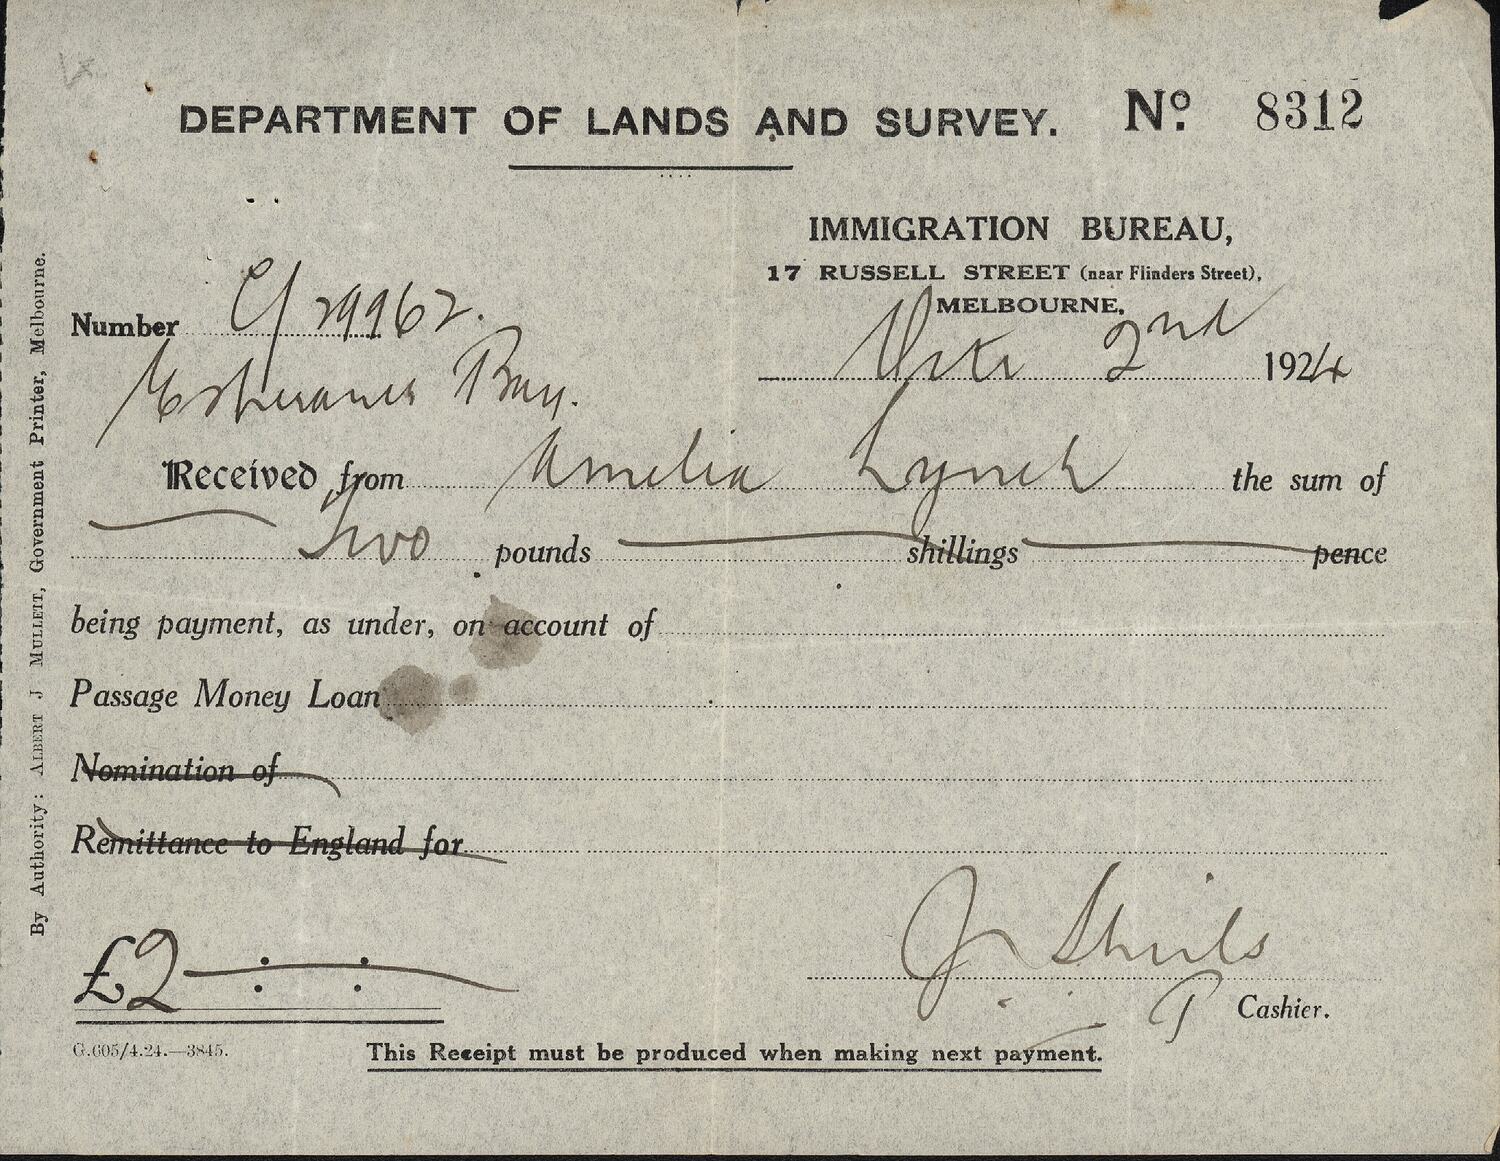 DEPARTMENT OF LANDS AND SURVEY. No. 8312
IMMIGRATION BUREAU,
17 RUSSELL STREET (near Flinders Street),
MELBOURNE.
Number C/29962.
2nd 1924
Bay.
Received from Amelia Lynch the sum of
Two pounds shillings pence
being payment, as under, on account of
Passage Money Loan
Nomination of
Remittance to England for
£2 : :
J. Shiels
P Cashier.
G.605/4.24.—3845.
This Receipt must be produced when making next payment.
By Authority: ALBERT J MULLETT, Government Printer, Melbourne.